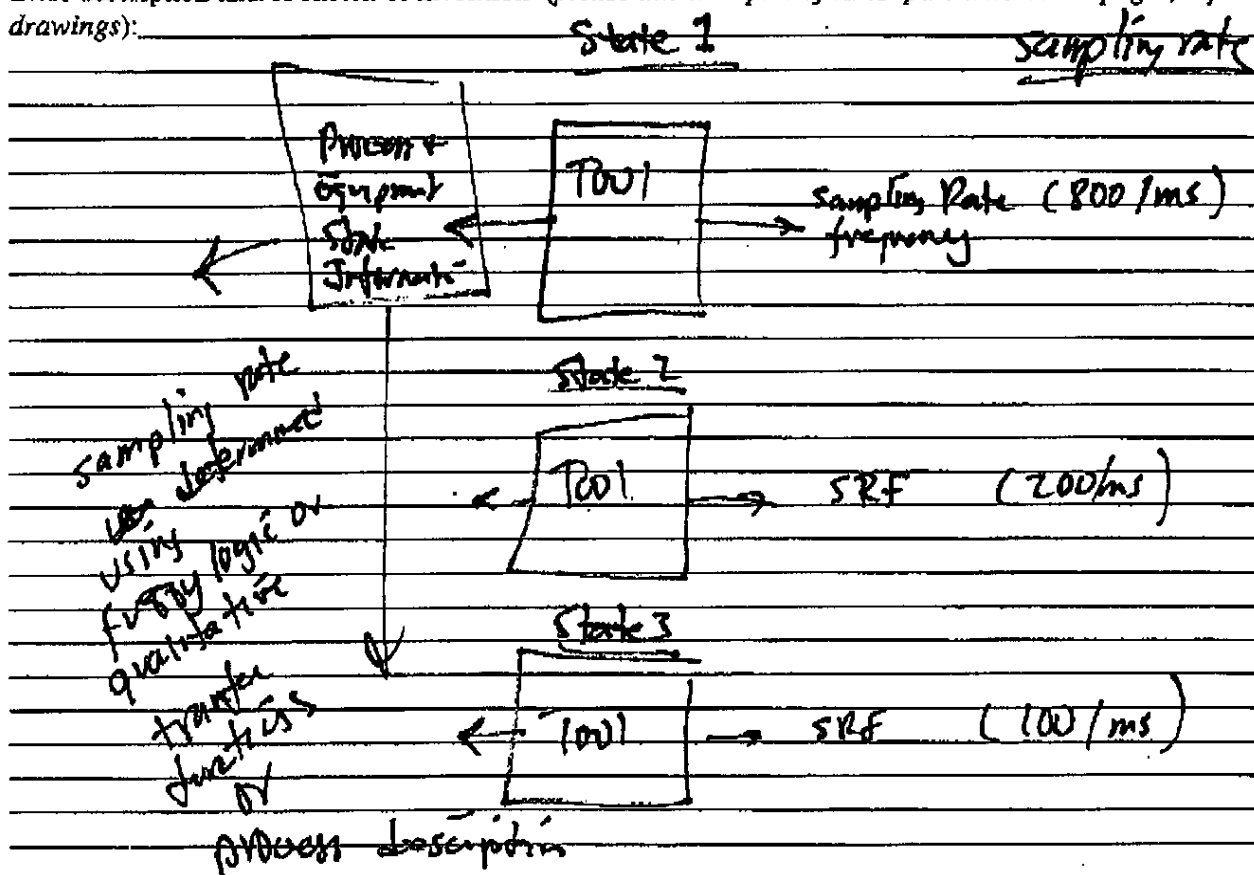 drawings):
State 1
sampling rate
Process +
Equipment
State
Informati
Tool
Sampling Rate (800/ms)
frequency
State 2
Tool
SRF (200/ms)
State 3
Tool
SRF (100/ms)
sampling rate
determined
using
fuzzy logic or
qualitative
transfer
functions
or
process description